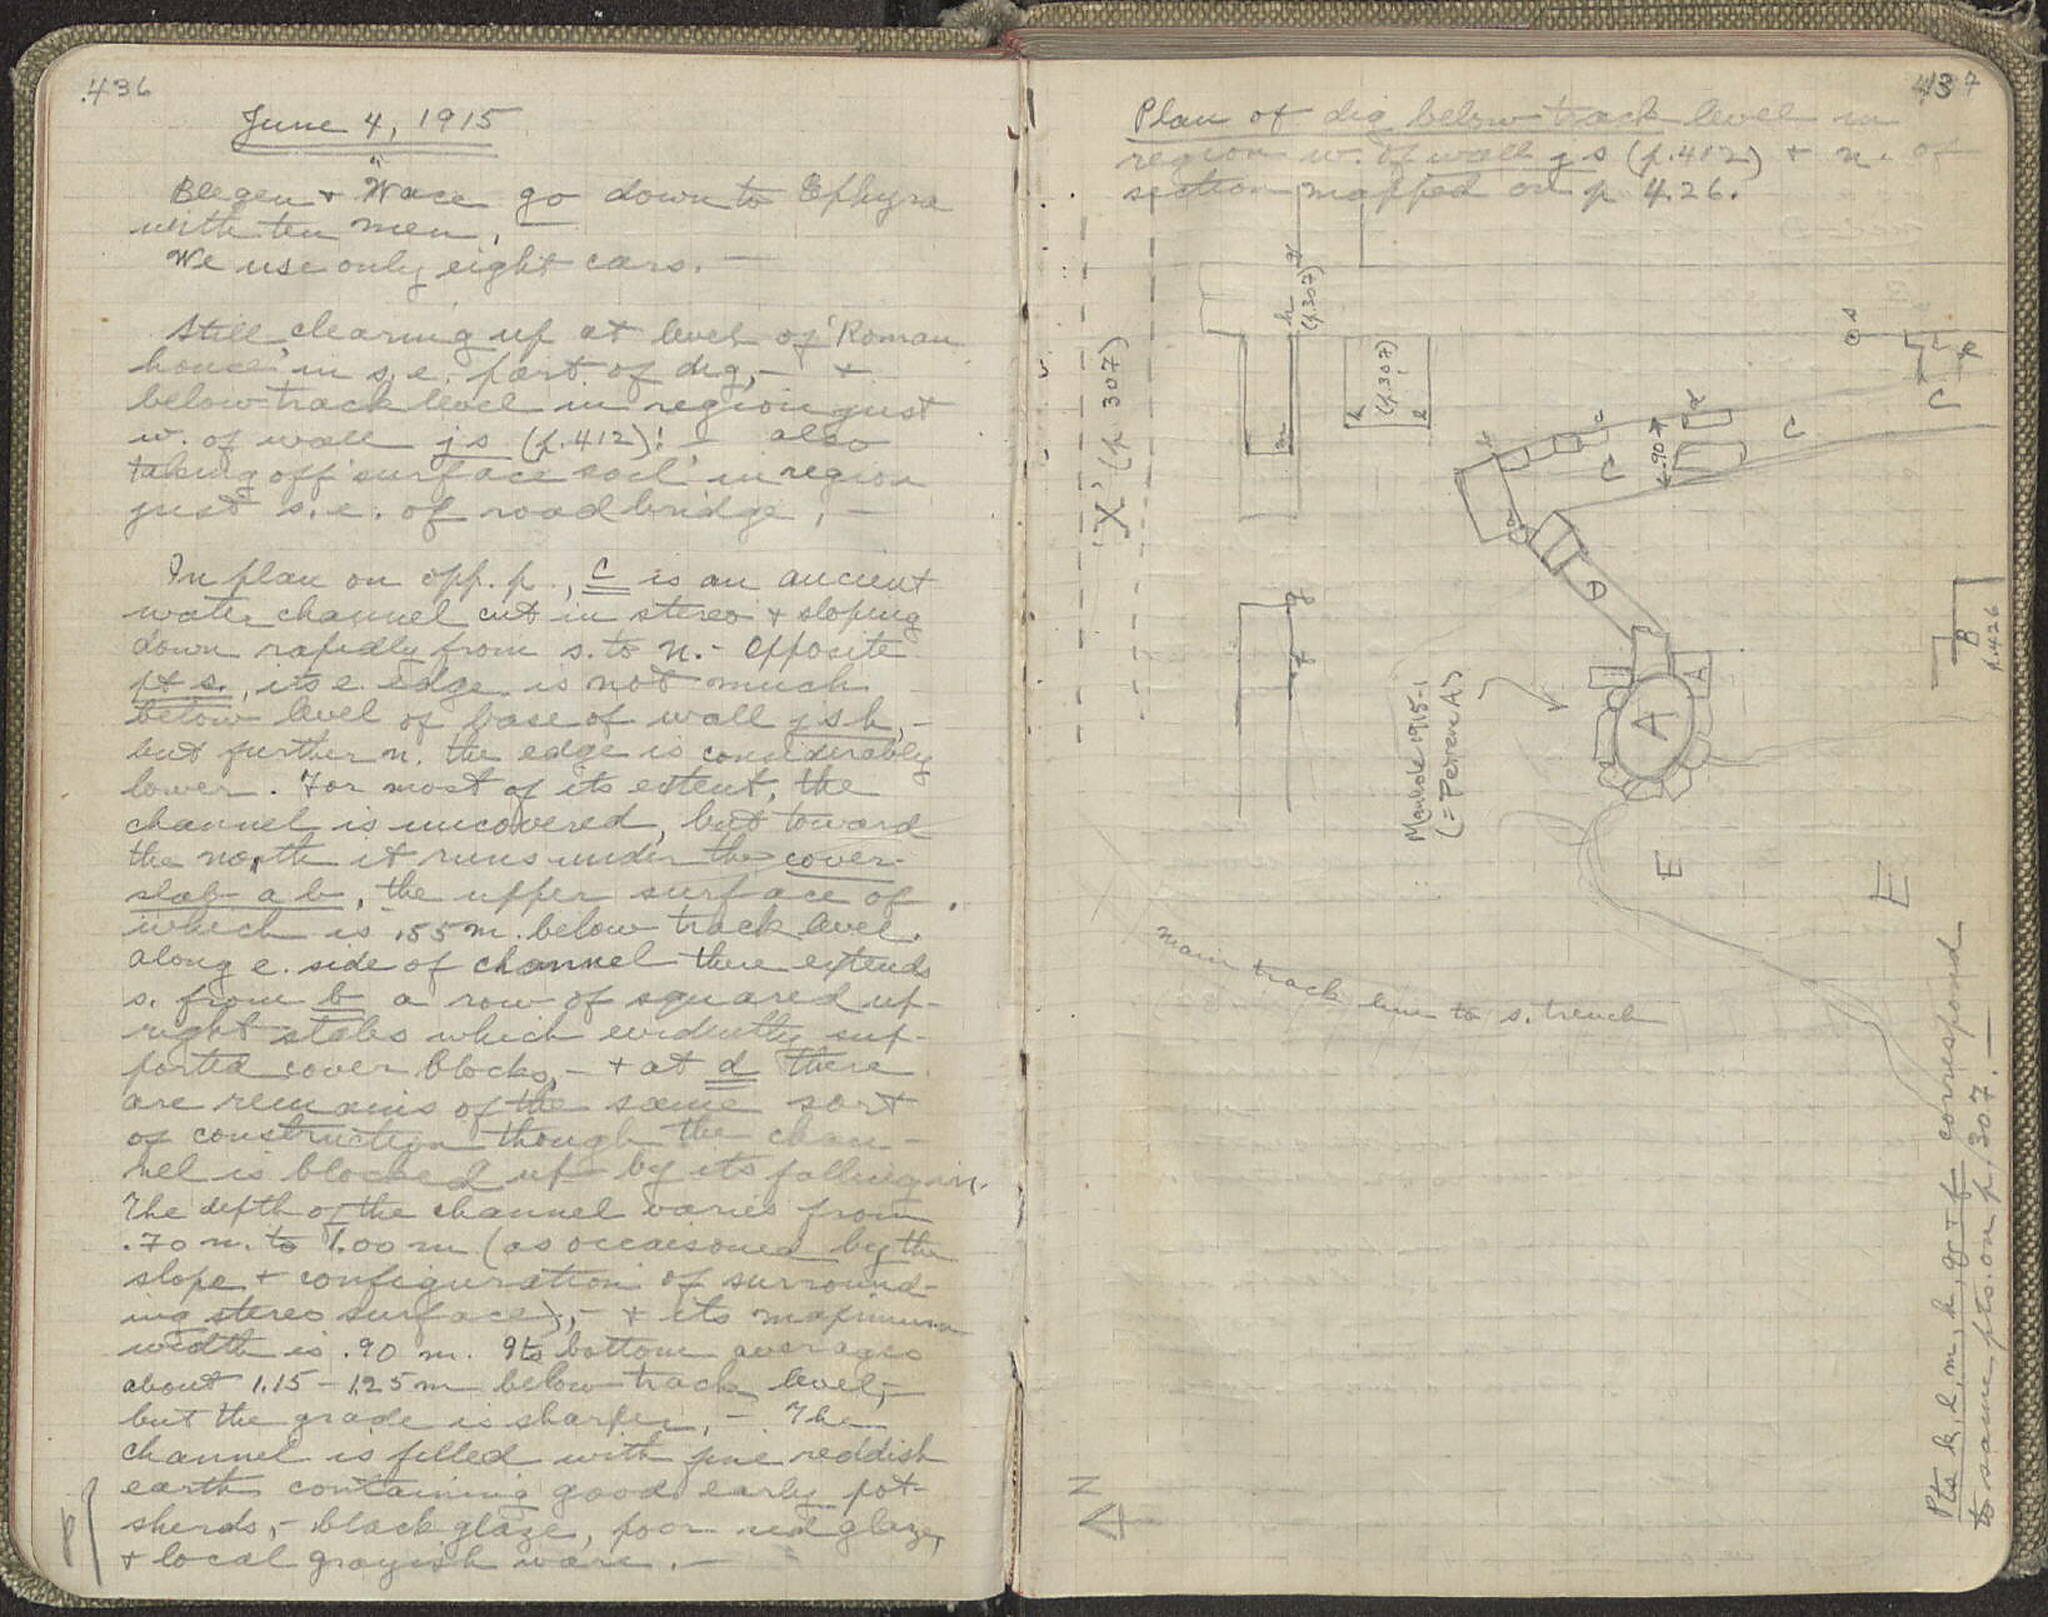 436
June 4, 1915
Blegen + Wace go down to Ephyra
with ten men,
We use only eight cars. —
Still clearing up at level of 'Roman
house' in s.e. part of dig, — +
below track level in region just
w. of wall js (p. 412)! — also
taking off 'surface soil' in region
just s.e. of road bridge, —
In plan on opp. p., C is an ancient
water channel cut in stereo + sloping
down rapidly from s. to n. - Opposite
pt s., its e. edge is not much
below level of base of wall jsh, -
but further n. the edge is considerably
lower. For most of its extent, the
channel is uncovered, but toward
the north it runs under the cover-
slab a b, the upper surface of
which is .55 m. below track level.
along e. side of channel there extends
s. from b a row of squared up-
right slabs which evidently sup-
ported cover blocks, - + at d there
are remains of the same sort
of construction though the chan-
nel is blocked up by its falling in.
The depth of the channel varies from
.70 m. to 1.00 m (as occaisoned by the
slope + configuration of surround-
ing stereo surface), - + its maximum
width is .90 m. Its bottom averages
about 1.15 - 1.25 m below track level, -
but the grade is sharper, - The
channel is filled with fine reddish
earth containing good early pot-
sherds, - black glaze, poor red glaze,
+ local grayish ware. —
P
437
Plan of dig below track level in
region w. of wall js (p. 412) + n. of
section mapped on p 426.
'X' (p 307)
g
h
(p. 307)
m
k
(p. 307)
l
s
C
b
c
d
.90
C
C
a
D
g
f
A
A
B
p. 426
Manhole 1915-1
(= Peiren A)
E
E
main track line to s. trench
N
Pts k, l, m, h, g + f correspond
to same pts. on p. 307. —